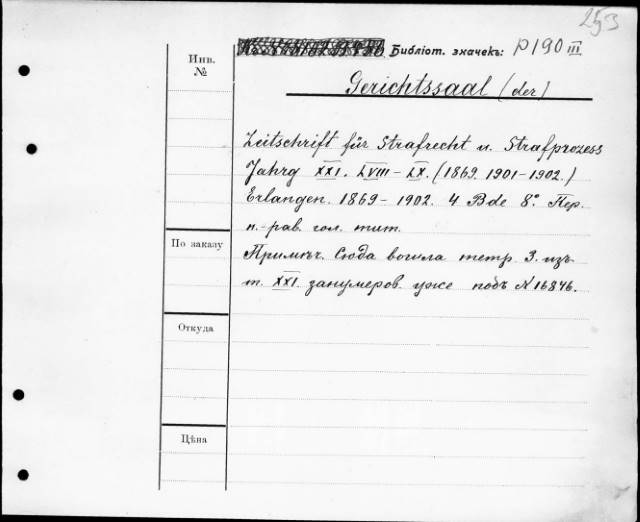 253
Библіот. значекъ: P190 III
Инв.
№
Gerichtssaal (der)
Zeitschrift für Strafrecht u. Strafprozess
Jahrg XXI. LVIII - LX. (1869. 1901-1902.)
Erlangen. 1869 - 1902. 4 Bde 8°. Пер.
п.-рав. гол. тит.
По заказу
Примѣч. Сюда вошла тетр. 3. изъ
т. XXI. занумеров. уже подъ N 16846.
Откуда
Цѣна